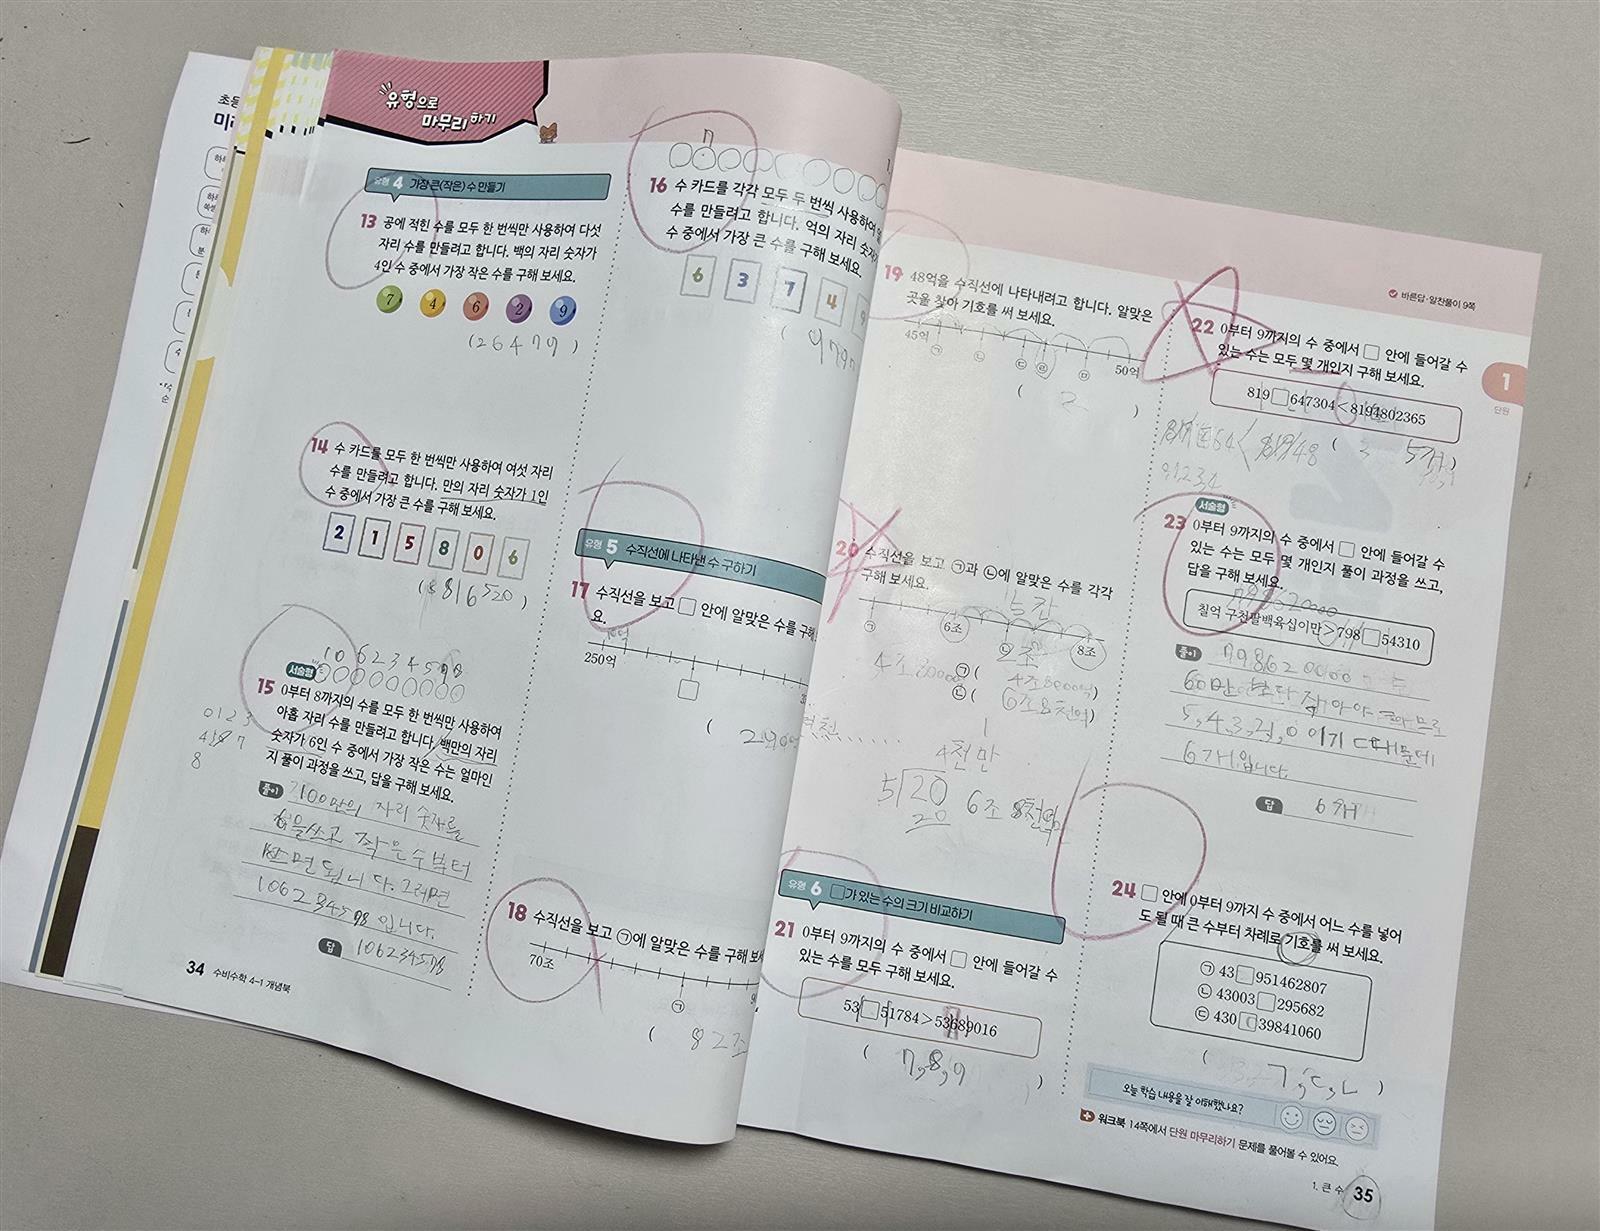 초등
유형으로
마무리하기
유형 4 가장 큰(작은) 수 만들기
13 공에 적힌 수를 모두 한 번씩만 사용하여 다섯
자리 수를 만들려고 합니다. 백의 자리 숫자가
4인 수 중에서 가장 작은 수를 구해 보세요.
7 4 6 2 9
(26479)
14 수 카드를 모두 한 번씩만 사용하여 여섯 자리
수를 만들려고 합니다. 만의 자리 숫자가 1인
수 중에서 가장 큰 수를 구해 보세요.
2 1 5 8 0 6
(816520)
106234578
서술형
15 0부터 8까지의 수를 모두 한 번씩만 사용하여
아홉 자리 수를 만들려고 합니다. 백만의 자리
숫자가 6인 수 중에서 가장 작은 수는 얼마인
지 풀이 과정을 쓰고, 답을 구해 보세요.
0 1 2 3
8
풀이 100만의 자리 숫자를
6을쓰고 작은수부터
쓰면됩니다. 그러면
106234578입니다.
답 106234578
34 수비수학 4-1 개념북
16 수 카드를 각각 모두 두 번씩 사용하여
수를 만들려고 합니다. 억의 자리 숫자
수 중에서 가장 큰 수를 구해 보세요.
6 3 7 4 9
유형 5 수직선에 나타낸 수 구하기
17 수직선을 보고 □ 안에 알맞은 수를 구해
요.
250억
□
18 수직선을 보고 ㉠에 알맞은 수를 구해 보세
70조
㉠
( 82조
19 48억을 수직선에 나타내려고 합니다. 알맞은
곳을 찾아 기호를 써 보세요.
45억 ㉠ ㉡ ㉢ ㉣ ㉤ 50억
20 수직선을 보고 ㉠과 ㉡에 알맞은 수를 각각
구해 보세요.
㉠ 6조 ㉡ 8조
㉠(
㉡( 6조8천억)
4천만
5 20
20
6조 8천억
유형 6 □가 있는 수의 크기 비교하기
21 0부터 9까지의 수 중에서 □ 안에 들어갈 수
있는 수를 모두 구해 보세요.
53□51784>53689016
( 7,8,9 )
바른답·알찬풀이 9쪽
22 0부터 9까지의 수 중에서 □ 안에 들어갈 수
있는 수는 모두 몇 개인지 구해 보세요.
819□647304<8194802365
0,1,2,3,4
1
단원
서술형
23 0부터 9까지의 수 중에서 □ 안에 들어갈 수
있는 수는 모두 몇 개인지 풀이 과정을 쓰고,
답을 구해 보세요.
칠억 구천팔백육십이만>798□54310
풀이
5,4,3,2,1,0 이기 때문에
6개입니다.
답 6개
24 □ 안에 0부터 9까지 수 중에서 어느 수를 넣어
도 될 때 큰 수부터 차례로 기호를 써 보세요.
㉠ 43□951462807
㉡ 43003□295682
㉢ 430□39841060
( ㄱ,ㄷ,ㄴ )
오늘 학습 내용을 잘 이해했나요?
워크북 14쪽에서 단원 마무리하기 문제를 풀어볼 수 있어요.
1. 큰 수 35